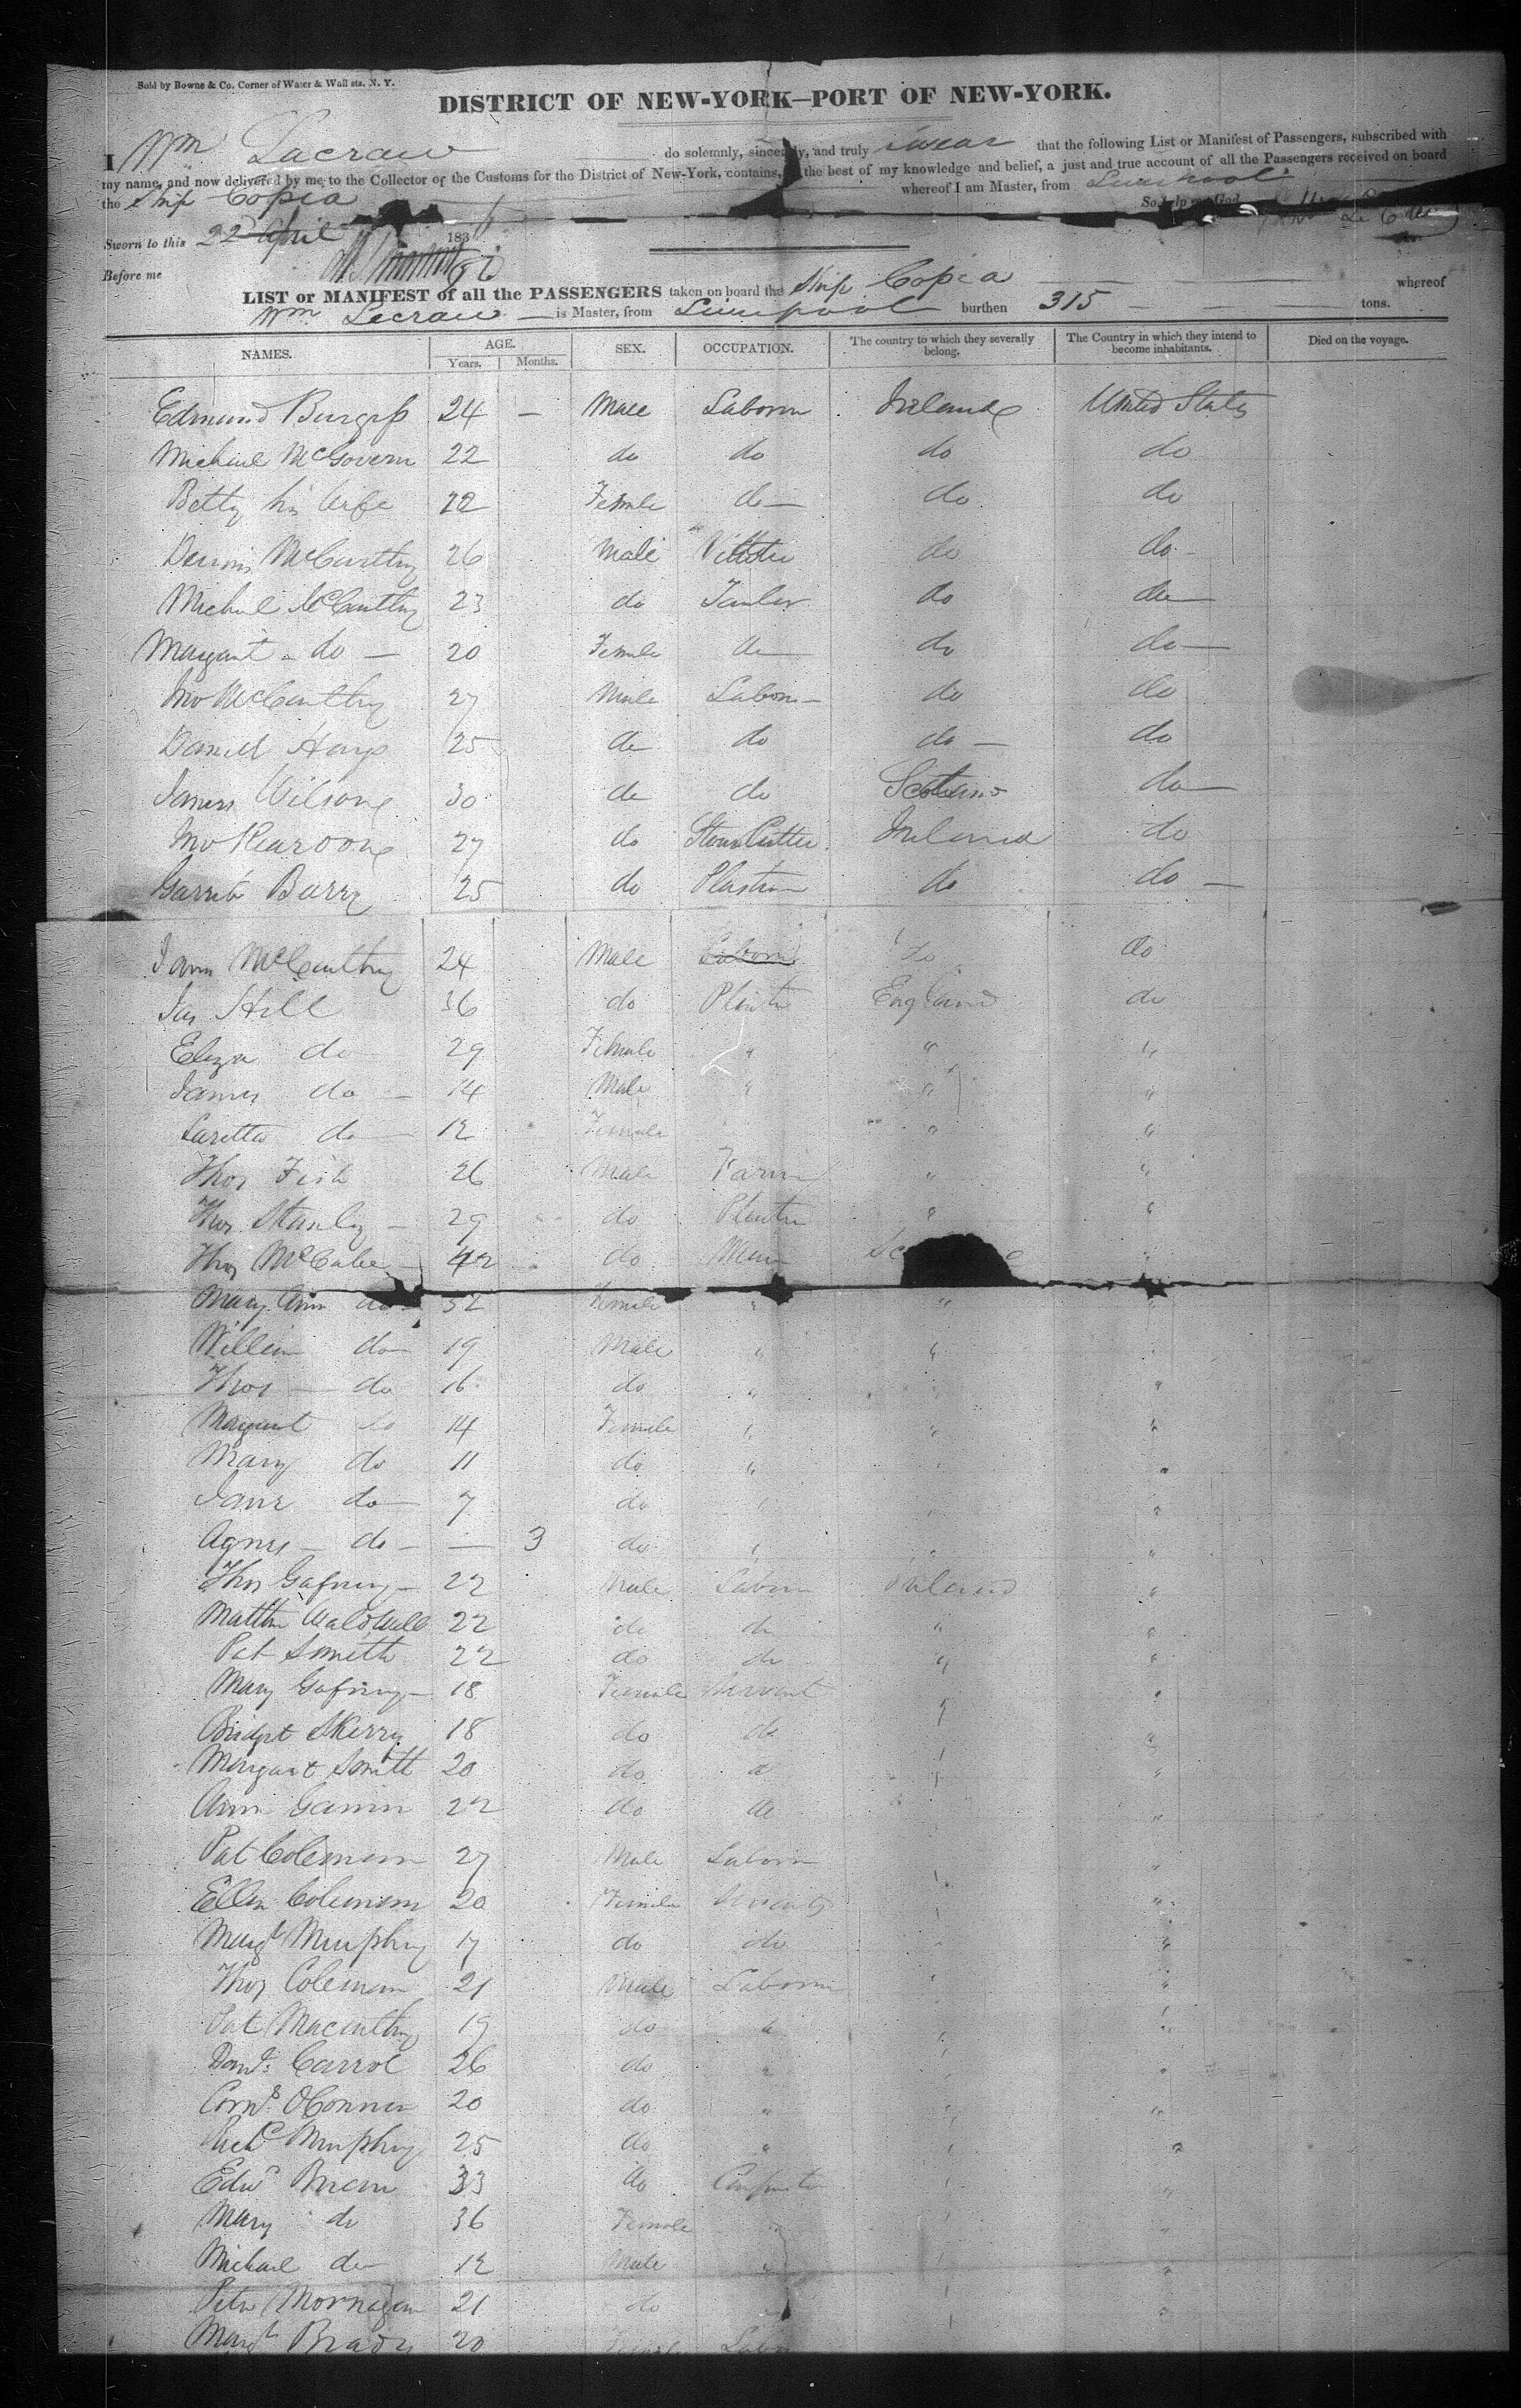 Sold by Bowne & Co. Corner of Water & Wall sts. N. Y.
DISTRICT OF NEW-YORK—PORT OF NEW-YORK.
I Wm Lacraw do solemnly, sincerely, and truly swear that the following List or Manifest of Passengers, subscribed with
my name, and now delivered by me to the Collector of the Customs for the District of New-York, contains, the best of my knowledge and belief, a just and true account of all the Passengers received on board
the Ship Copia whereof I am Master, from Liverpool
So help me God
Sworn to this 22d April 183
Before me
LIST or MANIFEST of all the PASSENGERS taken on board the Ship Copia whereof
Wm Lecraw is Master, from Liverpool burthen 315 tons.
NAMES. AGE. Years. Months. SEX. OCCUPATION. The country to which they severally belong. The Country in which they intend to become inhabitants. Died on the voyage.
Edmund Burgess 24 — Male Laborer Ireland United States
Michael McGovern 22 do do do do
Betty his Wife 22 Female do do do
Dennis McCarthy 26 Male do do
Michael McCarthy 23 do Tailor do do
Margaret do 20 Female do do do
Jno McCarthy 27 Male Labor do do
Daniel Hays 25 do do do do
James Wilson 30 do do Scotland do
Jno 27 do Stone Cutter Ireland do
Garrett Barry 25 do Plasterer do do
Jams McCarthy 24 Male Laborer do do
Jas Hill 36 do England do
Eliza do 29 Female " " "
James do 14 Male " " "
Laretta do 12 Female " "
Thos Fish 26 Male Farmer " "
Thos Stanley 29 do " "
Thos McCabe 42 do "
Mary Ann do 32 Female " " "
William do 19 Male " "
Thos do 16 do " "
Margaret do 14 Female " " "
Mary do 11 do " "
Jane do 7 do " "
Agnes do — 3 do " " "
Thos Gafney 22 Male Labor Ireland "
Matthew Caldwell 22 do do " "
Pat Smith 22 do do " "
Mary Gafney 18 Female Servant " "
Bridget Skerry 18 do do " "
Margaret Smith 20 do do " "
Ann 22 do do "
Pat Coleman 27 Male Laborer " "
Ellen Coleman 20 Female Servant " "
Margt Murphy 17 do do " "
Thos Coleman 21 Male Laborer " "
Pat Macarthy 19 do " "
Danl Carrol 26 do " " "
Corns OConner 20 do " " "
Richd Murphy 25 do " " "
Edwd 33 do Carpenter " "
Mary do 36 Female " " "
Michael do 12 Male " " "
Peter 21 do " "
Margt Brady 20 Female